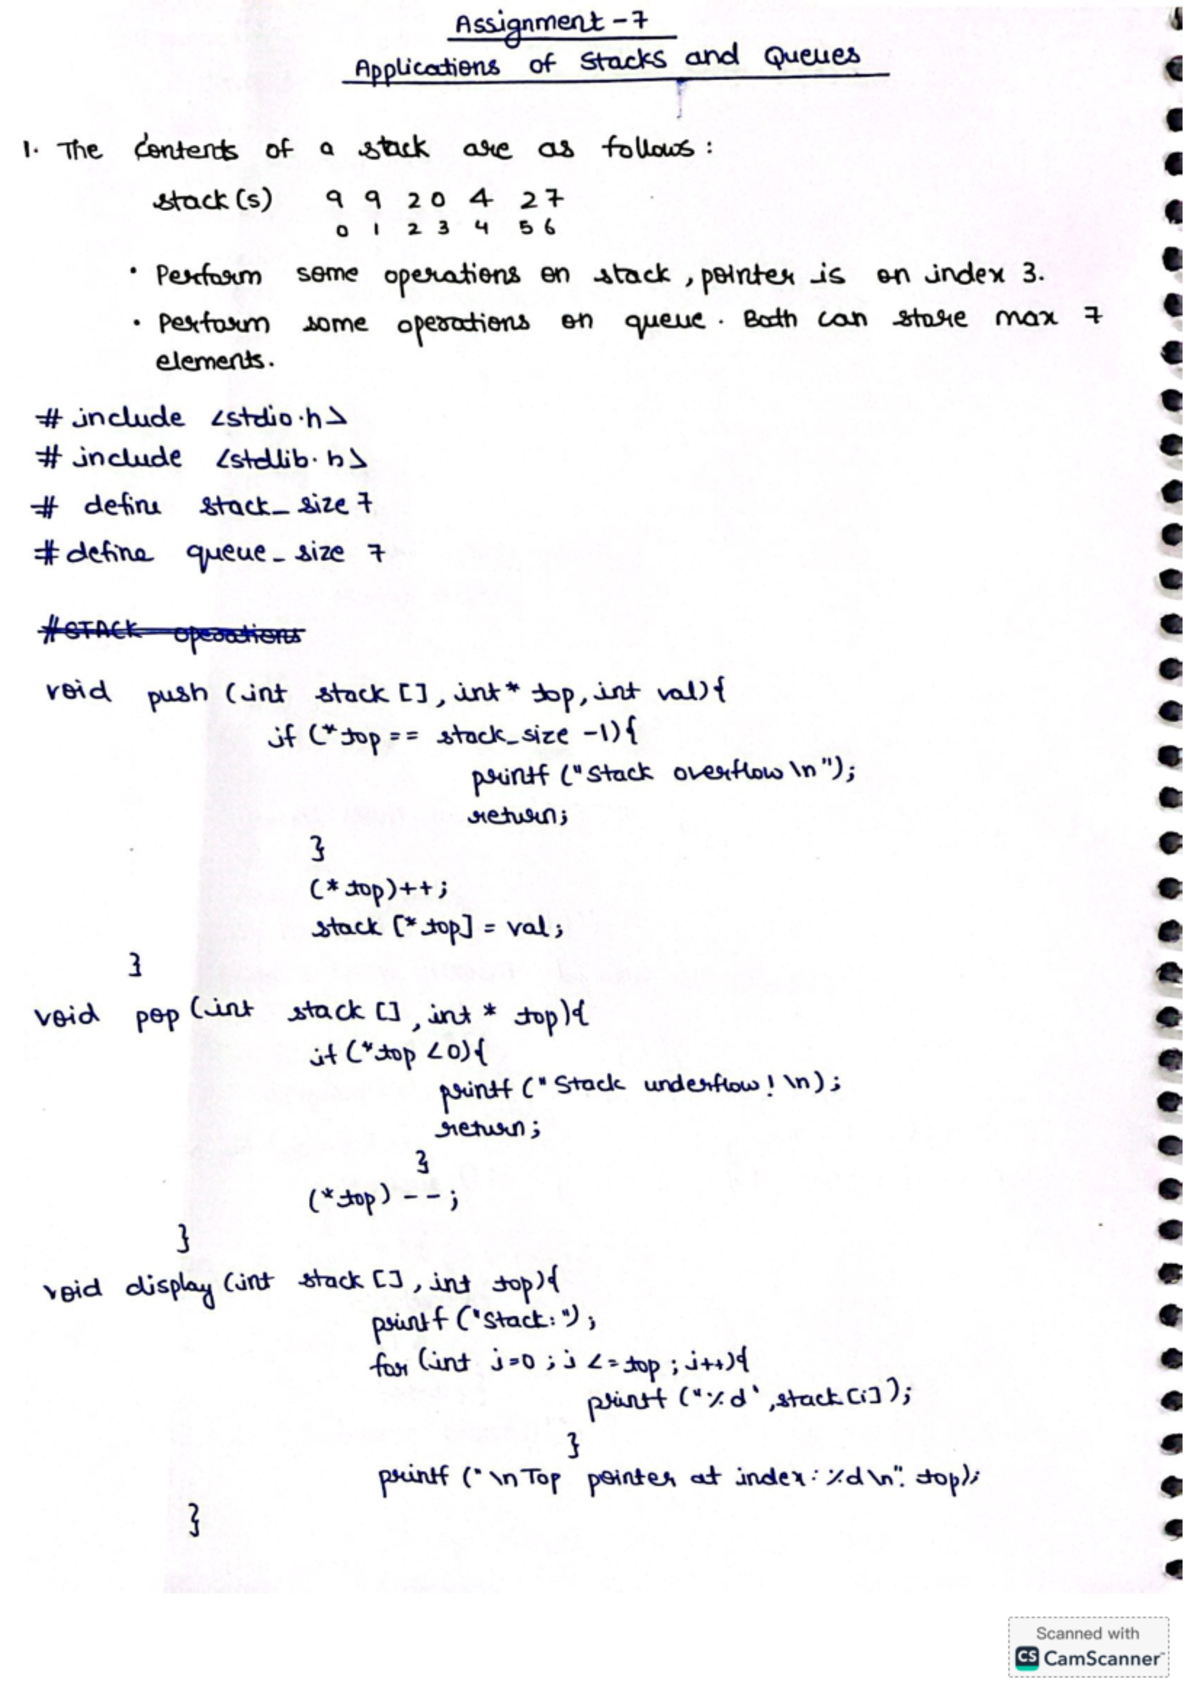 Assignment - 7
Applications of Stacks and Queues
1. The contents of a stack are as follows :
stack (s) 9 9 2 0 4 2 7
0 1 2 3 4 5 6
• Perform some operations on stack, pointer is on index 3.
• Perform some operations on queue. Both can store max 7
elements.
# include <stdio.h>
# include <stdlib.h>
# define stack_size 7
# define queue_size 7
#STACK operations
void push (int stack [], int* top, int val){
if (*top == stack_size -1){
printf ("Stack overflow \n");
return;
}
(*top)++;
stack [*top] = val;
}
void pop (int stack [], int * top){
if (*top <0){
printf (" Stack underflow! \n);
return;
}
(*top) --;
}
void display (int stack [], int top){
printf ("Stack: ");
for (int i=0 ; i <= top ; i++){
printf ("%d ' , stack [i]);
}
printf (" \n Top pointer at index : %d \n". top);
}
Scanned with
CS CamScanner™